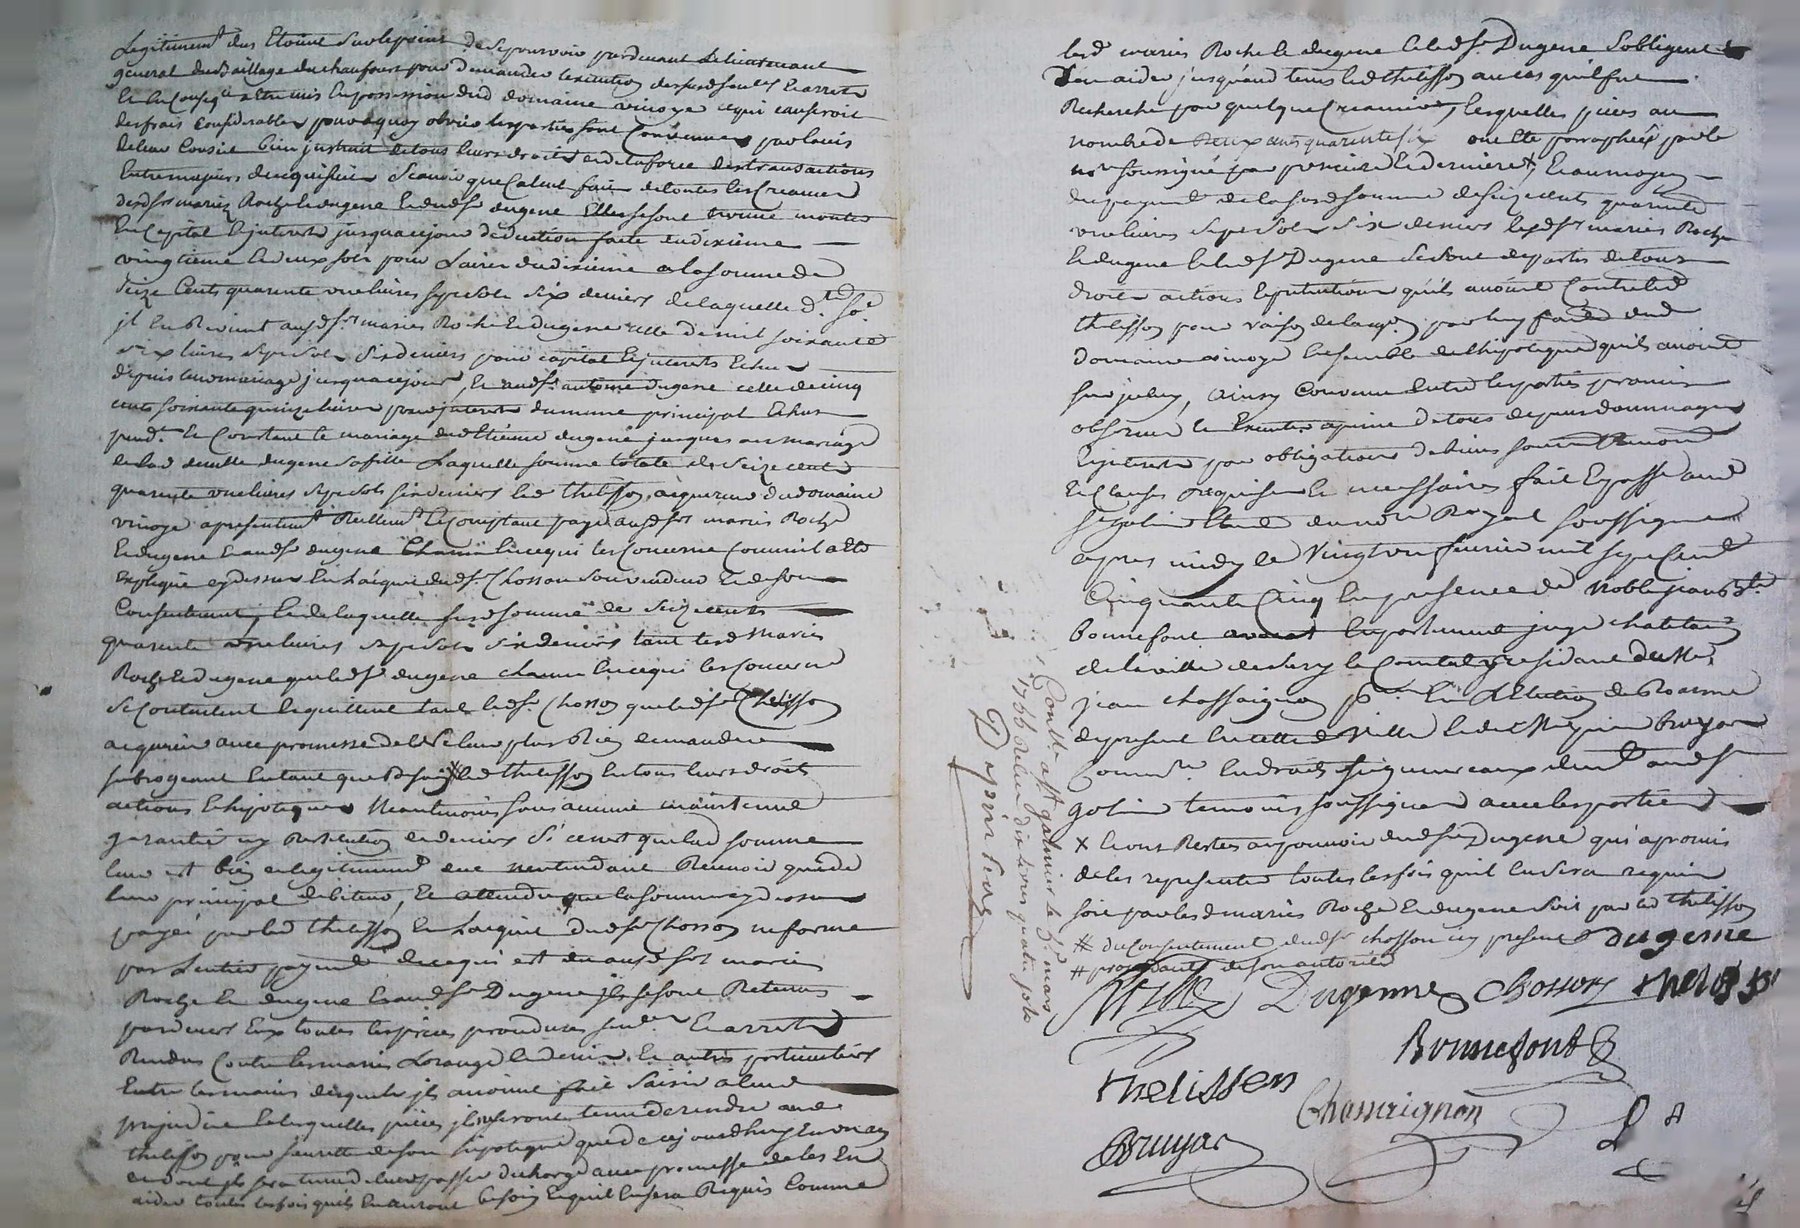 Legitimemt dus Etoient sur le point de se pourvoir pardevant le lieutenant
general du Baillage du chaufour pour demander lexecution desd sentences Et arrets
Et En conseqce Etre mis En possession dud domaine vinoge ce qui causeroit
des frais considerables pour a quoy obvier les parties sont convenues par lavis
de leur conseil bien instruit de tous leurs droits et de la force des transactions
Entre majeurs de ce quisuit Scavoir que Calcul fait de toutes les Creances
desd srs mariez Roche et dugene Et dud sr dugene Elles se sont trouvé monter
En Capital Et interets jusqua ce jour deduction faite du dixieme
vingtieme et deux sols pour Livre du dixieme a la somme de
Seize Cents quarente une livres sept sols six deniers de laquelle de so
jl En Revient auxd srs mariez Roche Et Dugene celle de mil soixante
six livres sept sols six deniers pour capital Et interets Echus
depuis leur mariage jusqua ce jour, Et aud sr antoine dugene celle de cinq
cents soixante quinze livres pour interets du meme principal Echus
pendt Et Constant le mariage dud Etienne dugene jusques au mariage
de lad demlle dugene sa fille Laquelle somme totale de Seize cents
quarente une livres sept sols six deniers led thelisson acquereur du domaine
vinoge a presentemt Reellemt Et Comptant payé auxd srs mariez Roche
Et dugene Et aud sr dugene Chacun En ce qui les Concerne comme il a Eté
Expliqué cy dessus En Lacquit dud sr Chosson son vendeur Et de son
Consentement, Et de laquelle susd somme de Seize cents
quarente une livres sept sols six deniers tant lesd Mariez
Roche Et dugene que led sr dugene chacun En ce qui les Concerne
se Contentent Et quittent tant led sr Chosson que led sr Thelisson
acquereur avec promesse de ne leur plus Rien demander
subrogeant En tant que Besoin X led Thelisson En tous leurs droits
actions Et hipoteques Neantmoins sans aucune maintenue
garantie ny Restitution de deniers Si ce n'est que lad somme
leur est bien et legitimement due nentendant Recevoir que de
leur principal debiteur, Et attendu que la somme cy dessus
payée par led thelisson En Lacquit dud sr Chosson ne forme
pas Lentier payement de ce qui est du auxd srs mariez
Roche Et dugene Et aud sr Dugene jls se sont Retenus
pardevers Eux toutes les pieces procedures sentces Et arrets
Rendus Contre les mariez Lorange et autres particuliers
Entre les mains desquels jls avoient fait saisir a leur
prejudice Et lesquelles pieces jls seront tenu de rendre aud
thelisson pour seureté de son hipoteque que de ce jourdhuy
et dont jls seront tenu de leur passer decharge avec promesse de les En
aider toutes les fois quils En auront besoin Et quil En sera Requis Comme
lesd mariez Roche Et dugene Et led sr Dugene sobligent
den aider jusquaud tems led thelisson au cas quil fut
Recherché par quelque Creancier, lesquelles pieces au
nombre de deux cens quarente six ont Eté paraphées par le
nore soussigné par premiere Et derniere X, Et au moyen
du payemt de la susd somme de seize cents quarente
une livres sept sols six deniers lesd srs mariez Roche
Et dugene Et led sr Dugene se sont departis de tous
droits actions Et pretentions quils avoient Contre led
thelisson pour raison de lacqon par luy faite dud
domaine vinoge Ensemble de lhipoteque quils avoient
sur jceluy, Ainsy Convenu Entre les parties promis
observer Et Executer a peine de tous depens dommages
Et interets par obligation de biens soumon Renonon
Et Clauses Requises Et necessaires fait Et passé aud
St galmier Etude du nore Royal soussigné
apres midy le Vingt un fevrier mil sept Cent
Cinquante Cinq En presence de Noble jean Bte
Bonnefont avocat En parlement juge chatelain
de la ville de Sury le Comtal y residant de Me
jean chassaignon pr En Lelection de Roanne
de present En cette Ville Et de Me bruyas
Commre En droits seigneuriaux demt aud St
galmier temoins soussignez avec les parties
X Et ont Restés au pouvoir dud sr Dugene qui a promis
de les representer toutes les fois quil En sera requis
soit par lesd mariez Roche Et dugene soit par led thelisson
# du Consentement dud sr chosson cy present dugenne
# procedants de son autorité
Dugenne Chosson thelisson
Bonnefont
thelissen
Chassaignon
Bruyas
Conllé a St galmier le 3e mars
1766 Recu dix livres quatre sols